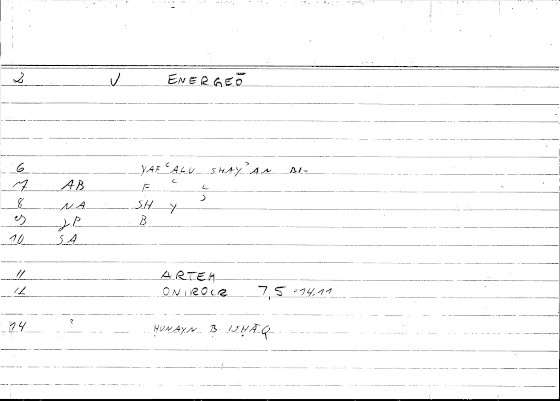 2 V ENERGEŌ
6 YAFʿALU SHAYʾAN BI-
7 AB F ʿ L
8 NA SH Y ʾ
9 JP B
10 SA
11 ARTEM
12 ONIROCR 7,5 -14,11
14 ? ḤUNAYN B ISḤĀQ